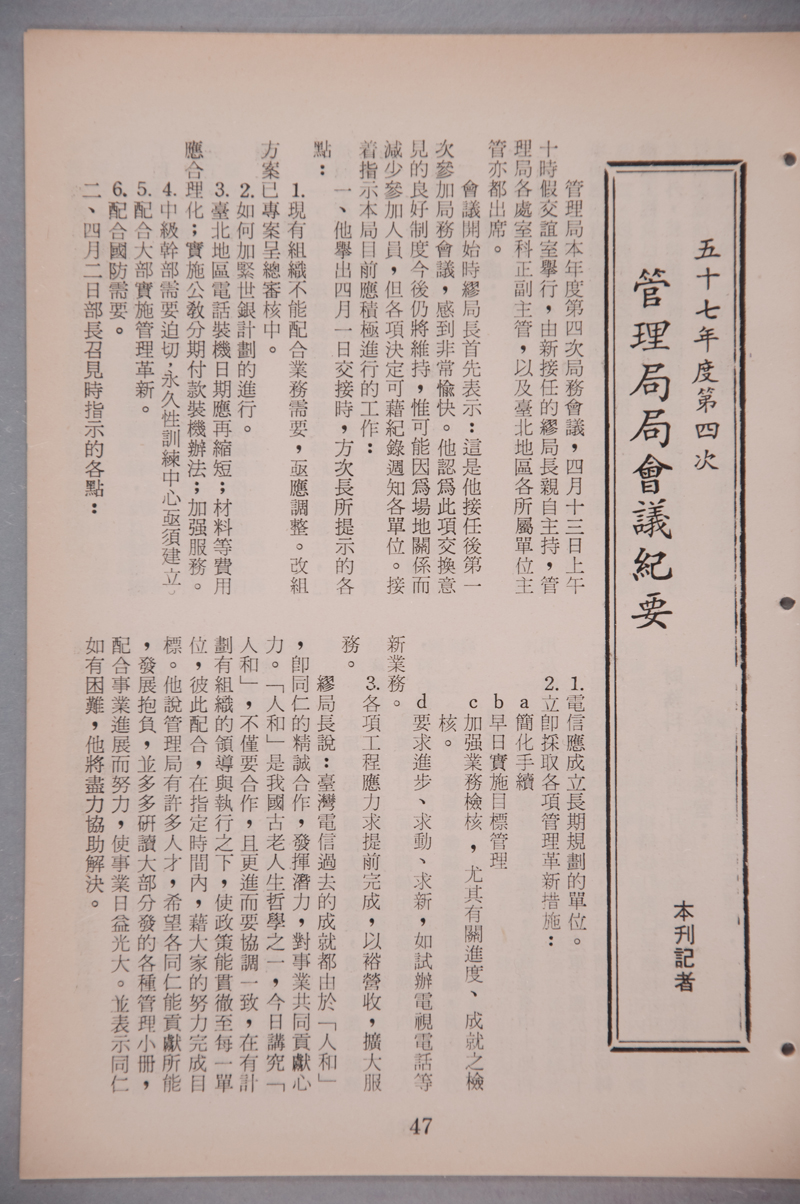 五十七年度第四次
管理局局會議紀要
本刊記者
管理局本年度第四次局務會議，四月十三日上午
十時假交誼室舉行，由新接任的繆局長親自主持，管
理局各處室科正副主管，以及臺北地區各所屬單位主
管亦都出席。
會議開始時繆局長首先表示：這是他接任後第一
次參加局務會議，感到非常愉快。他認爲此項交換意
見的良好制度今後仍將維持，惟可能因爲場地關係而
減少參加人員，但各項決定可藉紀錄週知各單位。接
着指示本局目前應積極進行的工作：
一、他舉出四月一日交接時，方次長所提示的各
點：
1.現有組織不能配合業務需要，亟應調整。改組
方案已專案呈總審核中。
2.如何加緊世銀計劃的進行。
3.臺北地區電話裝機日期應再縮短；材料等費用
應合理化；實施公教分期付款裝機辦法；加强服務。
4.中級幹部需要迫切，永久性訓練中心亟須建立。
5.配合大部實施管理革新。
6.配合國防需要。
二、四月二日部長召見時指示的各點：
1.電信應成立長期規劃的單位。
2.立卽採取各項管理革新措施：
a簡化手續
b早日實施目標管理
c加强業務檢核，尤其有關進度、成就之檢
核。
d要求進步、求動、求新，如試辦電視電話等
新業務。
3.各項工程應力求提前完成，以裕營收，擴大服
務。
繆局長說：臺灣電信過去的成就都由於「人和」
，卽同仁的精誠合作，發揮潛力，對事業共同貢獻心
力。「人和」是我國古老人生哲學之一，今日講究「
人和」，不僅要合作，且更進而要協調一致，在有計
劃有組織的領導與執行之下，使政策能貫徹至每一單
位，彼此配合，在指定時間內，藉大家的努力完成目
標。他說管理局有許多人才，希望各同仁能貢獻所能
，發展抱負，並多多研讀大部分發的各種管理小冊，
配合事業進展而努力，使事業日益光大。並表示同仁
如有困難，他將盡力協助解決。
47